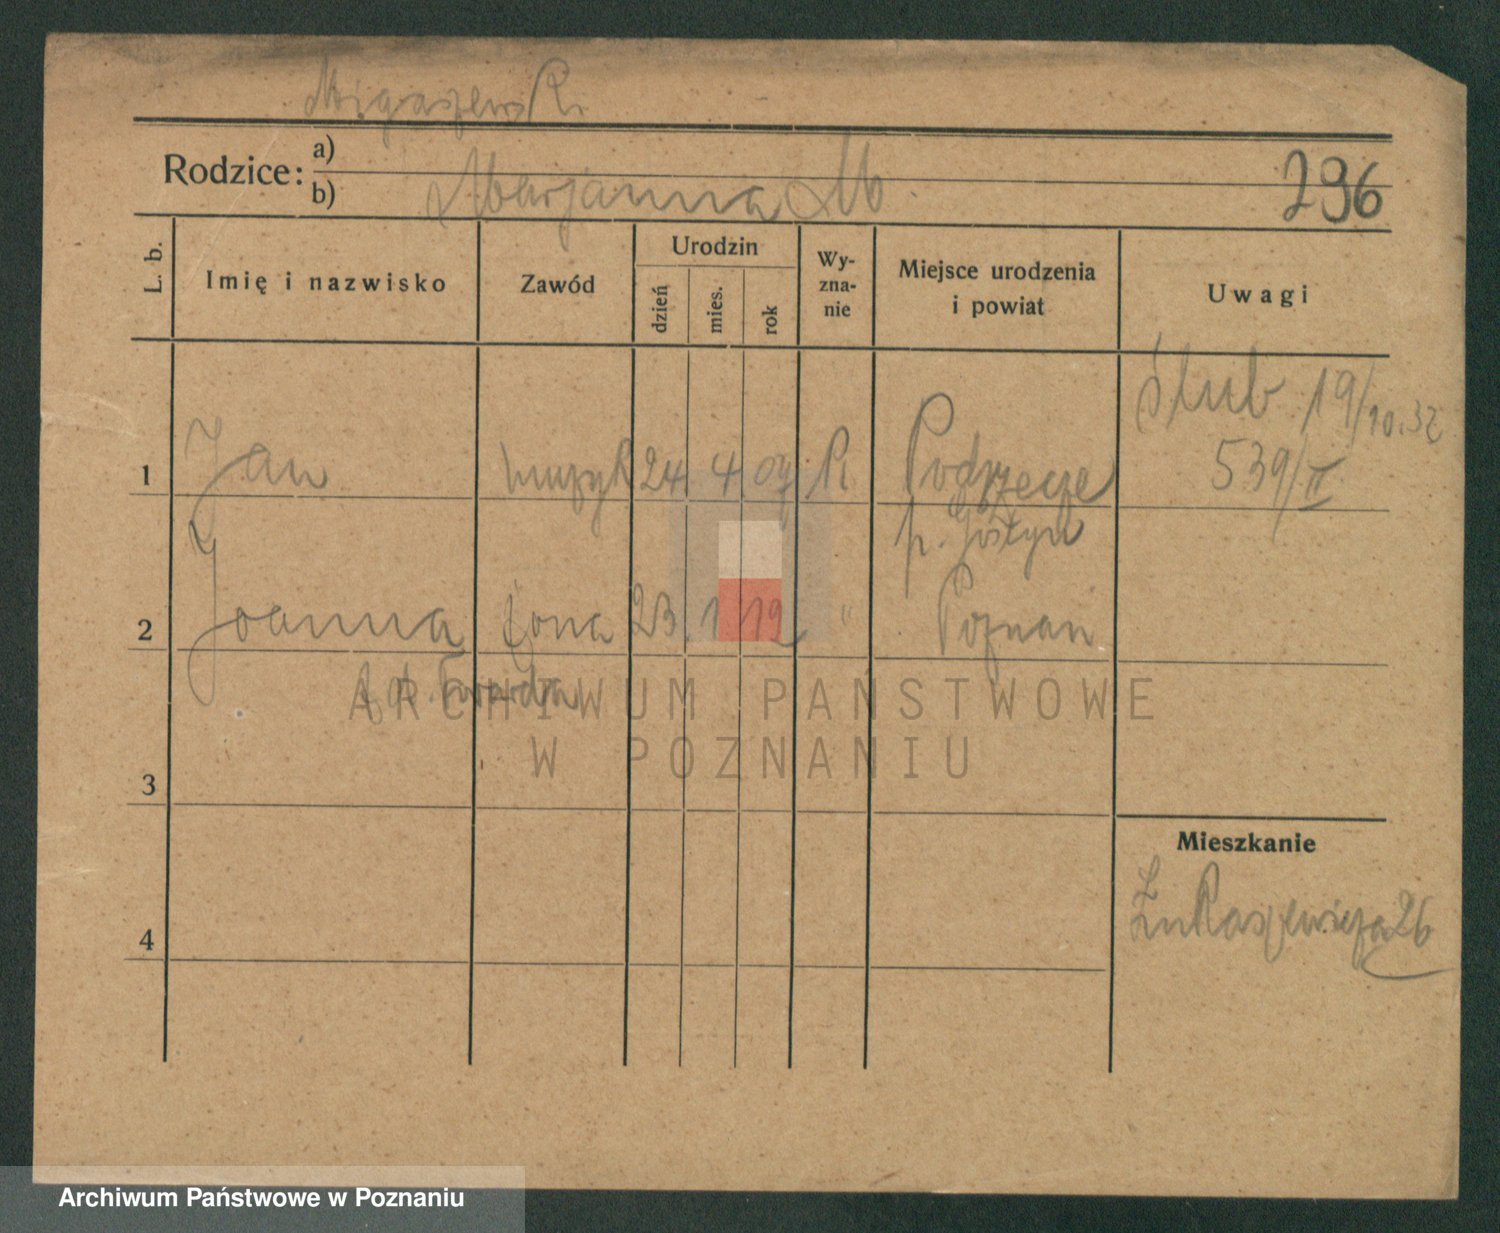 Migaszewski
Rodzice: a)
b) Marjanna M.
296
L. b. Imię i nazwisko Zawód Urodzin dzień mies. rok Wy-zna-nie Miejsce urodzenia i powiat Uwagi
Ślub 19/10.32
539/II
1 Jan muzyk 24 4 07 R Podrzecze
p. Gostyn
2 Joanna żona 23. 1 12 " Poznan
Twarda
3
Mieszkanie
4 Łukaszewicza 26
ARCHIWUM PAŃSTWOWE
W POZNANIU
Archiwum Państwowe w Poznaniu